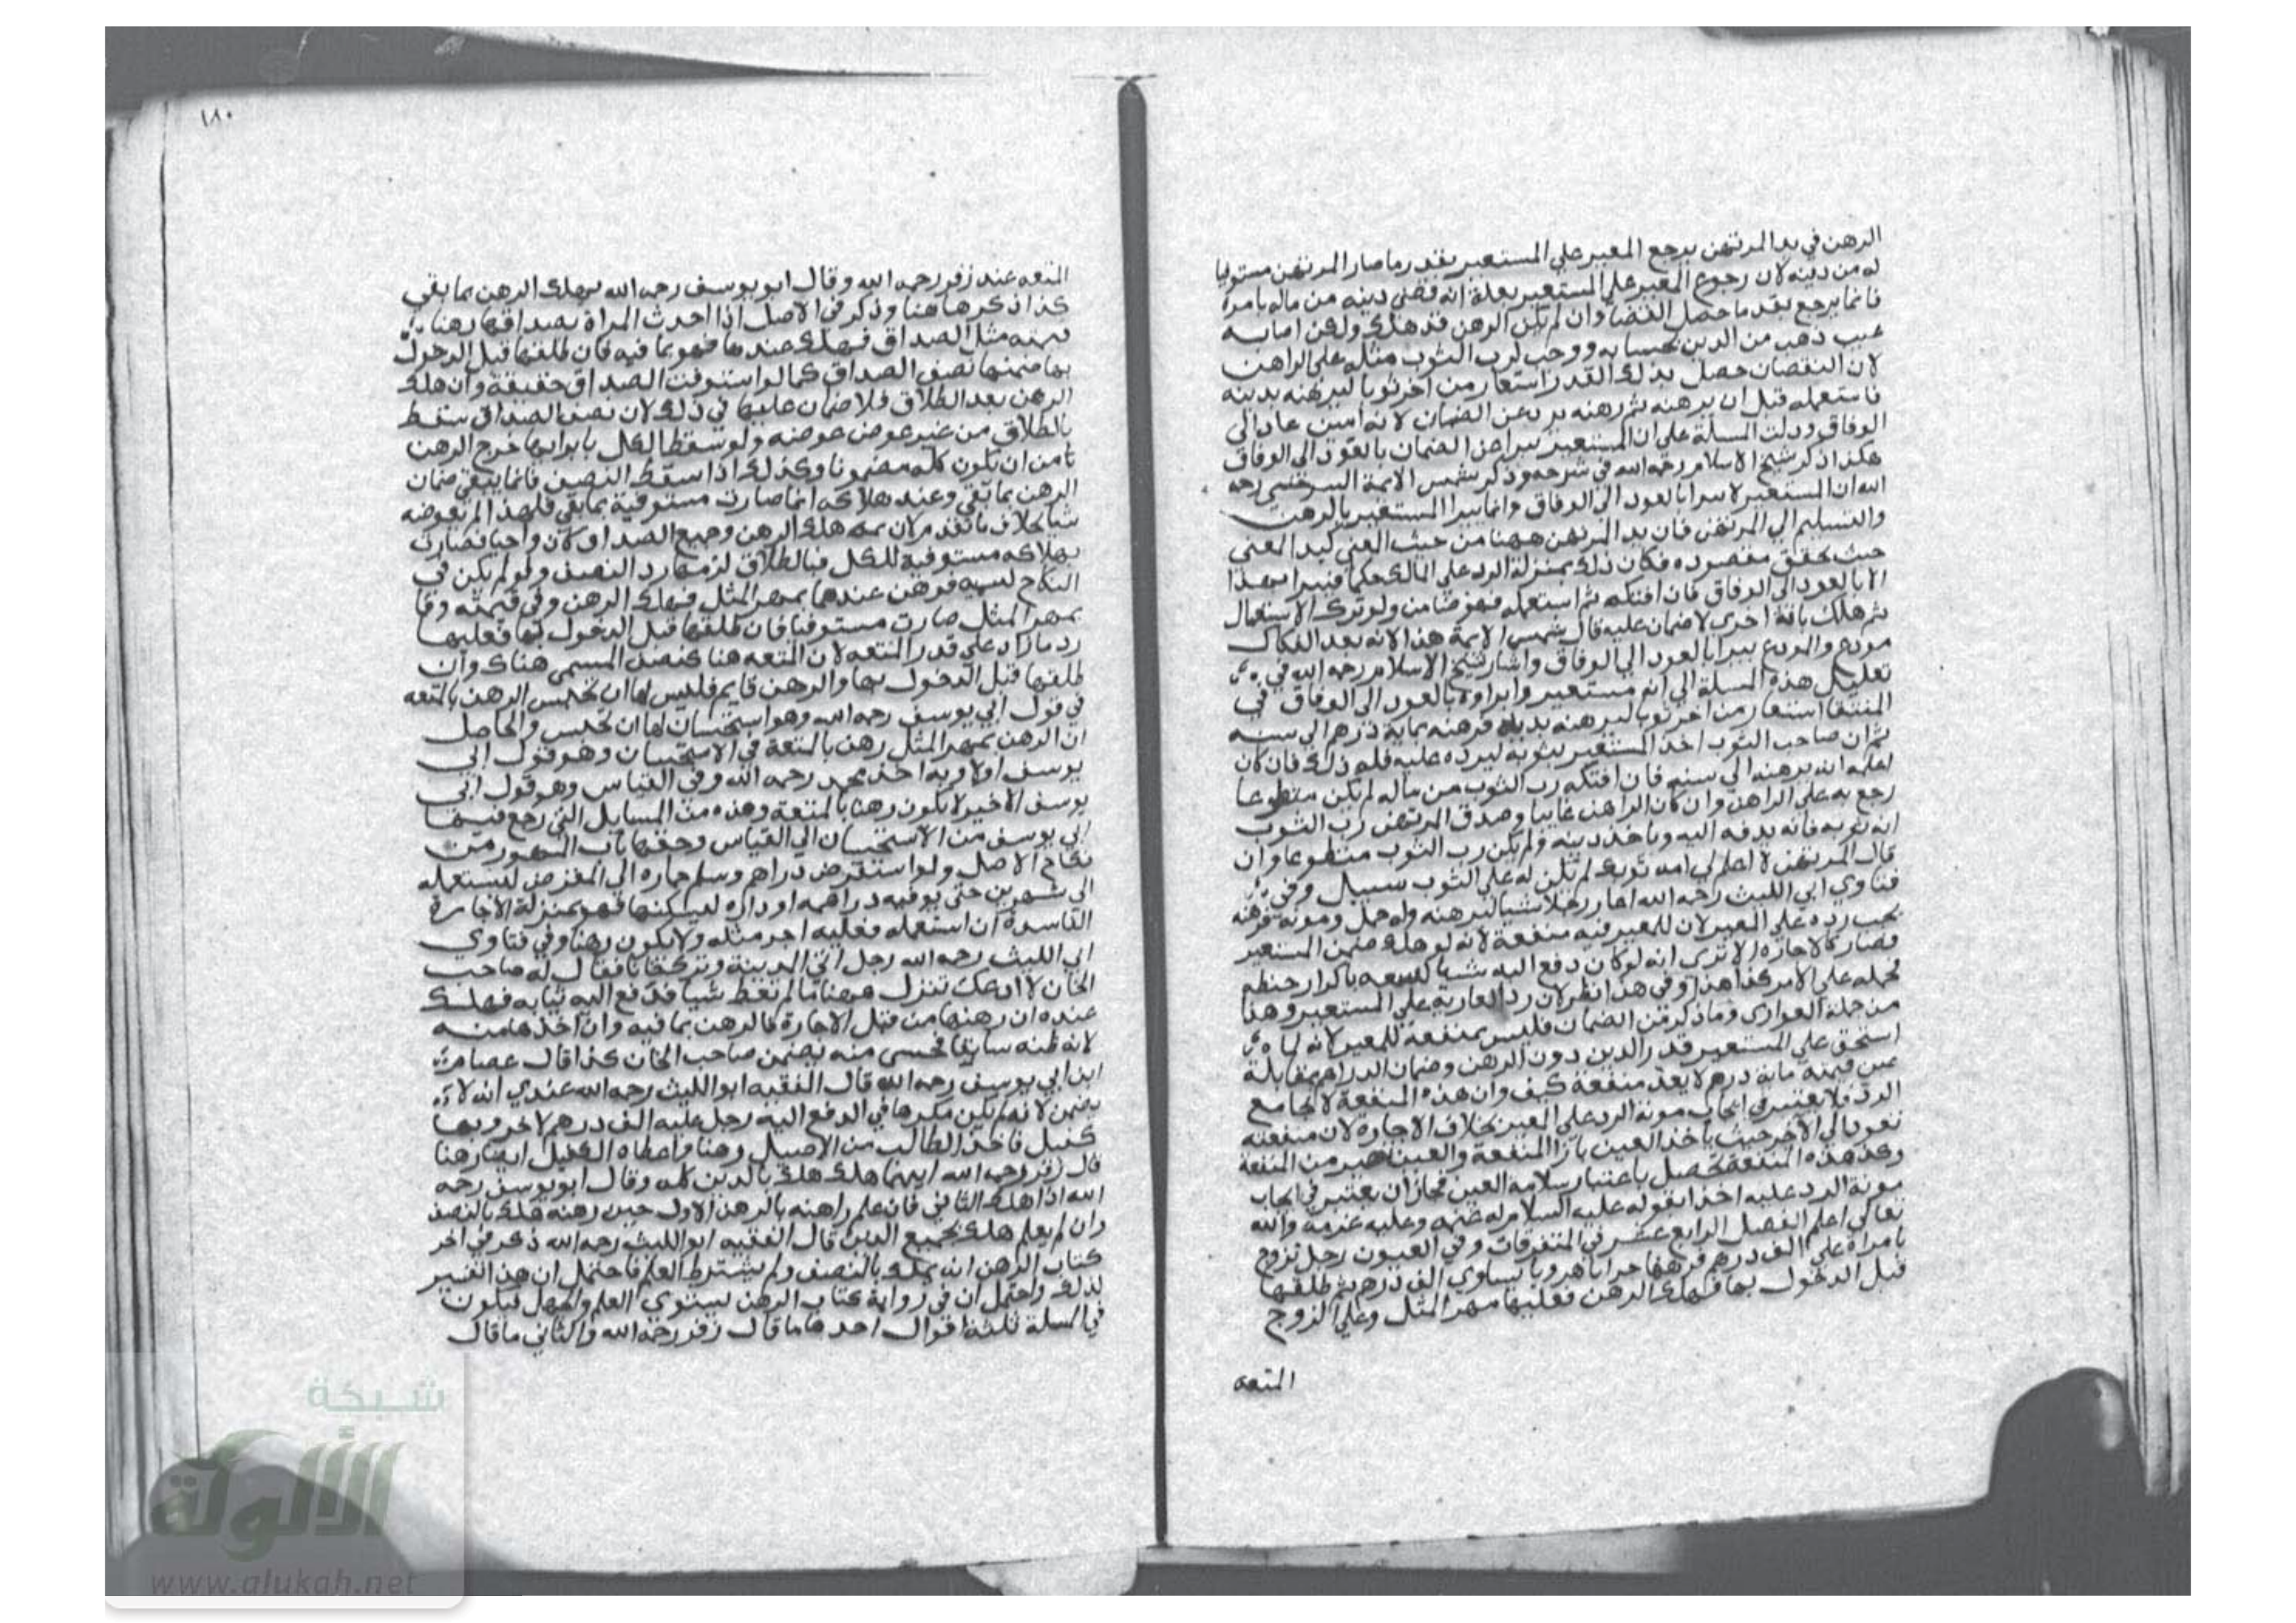 الرهن في يد المرتهن يرجع المعير علي المستعير بقدر ما صار المرتهن مستوفيا
له من دينه لان رجوع المعير علي المستعير بعلة انه قضي دينه من ماله بامره
فانما يرجع بقدر ما حصل القضا وان لم يكن الرهن قد هلك ولكن اصابه
عيب ذهب من الدين بحسابه ووجب لرب الثوب مثله علي الراهن
لان النقصان حصل بذلك القدر استعار من اخر ثوبا ليرهنه بدينه
فاستعمله قبل ان يرهنه ثم رهنه بري عن الضمان لانه امين عاد الي
الوفاق ودلت المسلة علي ان المستعير يبرا عن الضمان بالعود الي الوفاق
هكذا ذكر شيخ الاسلام رحمه الله في شرحه وذكر شمس الايمة السرخسي رحمه
الله ان المستعير لا يبرا بالعود الي الوفاق وانما يبرا المستعير بالرهن
والتسليم الي المرتهن فان يد المرتهن ههنا من حيث المعني كيد المعني
حيث تحقق مقصوده فكان ذلك بمنزلة الرد علي المالك حكما فيبرا بهذا
لا بالعود الي الوفاق فان افتكه ثم استعمله فهو ضامن ولو ترك الاستعمال
ثم هلك بافة اخري لا ضمان عليه قال شمس الايمة هذا لانه بعد الفكاك
مودع والمودع يبرا بالعود الي الوفاق واشار شيخ الاسلام رحمه الله في
تعليل هذه المسلة الي انه مستعير وابراوه بالعود الي الوفاق في
المنتقا استعار من اخر ثوبا ليرهنه بدينه فرهنه بماية درهم الي سنه
ثم ان صاحب الثوب اخذ المستعير بثوبه ليرده عليه فله ذلك فان كان
اعلمه انه يرهنه الي سنه فان افتكه رب الثوب من ماله لم يكن متطوعا
رجع به علي الراهن وان كان الراهن غايبا وصدق المرتهن رب الثوب
انه ثوبه فانه يدفعه اليه وياخذ دينه ولم يكن رب الثوب متطوعا وان
قال المرتهن لا اعلم لي انه ثوبك لم يكن له علي الثوب سبيل وفي
فتاوي ابي الليث رحمه الله اعار رجلا شيا ليرهنه وله حمل ومونة فرهنه
يجب رده علي المعير لان للمعير فيه منفعة لانه لو هلك ضمن المستعير
فصار كالاجارة الا تري انه لو كان دفع اليه شيا باكرار حنطه
تحمله علي الامر كذا هذا وفي هذا نظر لان رد العارية علي المستعير وهذا
من جملة العواري وما ذكر من الضمان فليس بمنفعة للمعير لانه لما
استحق علي المستعير قدر الدين دون الرهن وضمان الدراهم بمقابلة
عين قيمته ماية درهم لا يعد منفعة كيف وان هذه المنفعة لا تجامع
الرد فلا يعتبر في ايجاب مونة الرد علي المعير بخلاف الاجارة لان منفعته
تعود الي الاخر حيث ياخذ العين بازا المنفعة والعين خير من المنفعة
وهذه المنفعة تحصل باعتبار سلامة العين فجاز ان يعتبر في ايجاب
مونة الرد عليه اخذا بقوله عليه السلام له غنمه وعليه غرمه والله
تعالي اعلم الفصل الرابع عشر في المتفرقات وفي العيون رجل تزوج
بامراة علي الف درهم فرهنها جرابا هرويا يساوي الف درهم ثم طلقها
قبل الدخول بها فهلك الرهن فعليها مهر المثل وعلي الزوج
المتعه
١٨٠
المتعه عند زفر رحمه الله وقال ابو يوسف رحمه الله يهلك الرهن بما بقي
كذا ذكرها هنا وذكر في الاصل اذا اخذت المراة بصداقها رهنا
قيمته مثل الصداق فهلك عندها فهو بما فيه فان طلقها قبل الدخول
بها ضمنها نصف الصداق كما لو استوفت الصداق حقيقة وان هلك
الرهن بعد الطلاق فلا ضمان عليها في ذلك لان نصف الصداق سقط
بالطلاق من غير عوض عوضه ولو سقط الكل بابرايها خرج الرهن
من ان يكون كله مضمونا وكذلك اذا سقط النصف فانما يبقي ضمان
الرهن بما بقي وعند هلاكه انما صارت مستوفية بما بقي فلهذا لم تعوضه
شيا بخلاف ما تقدم لان ثمه هلك الرهن وجميع الصداق كان واجبا فصارت
بهلاكه مستوفية للكل فبالطلاق لزمها رد النصف ولو لم يكن في
النكاح تسميه فرهن عندها بمهر المثل فهلك الرهن وفي قيمته وفا
بمهر المثل صارت مستوفيا فان طلقها قبل الدخول بها فعليها
رد ما زاد علي قدر المتعه لان المتعه هنا كنصف المسمي هناك وان
طلقها قبل الدخول بها والرهن قايم فليس لها ان تحبس الرهن بالمتعه
في قول ابي يوسف رحمه الله وهو استحسان لها ان تحبس والحاصل
ان الرهن بمهر المثل رهن بالمتعة في الاستحسان وهو قول ابي
يوسف اولا وبه اخذ محمد رحمه الله وفي القياس وهو قول ابي
يوسف الاخير لا يكون رهنا بالمتعة وهذه من المسايل التي رجع فيها
ابي يوسف من الاستحسان الي القياس وحقها باب المهور من
نكاح الاصل ولو استقرض دراهم وسلم حماره الي المقرض ليستعمله
الي شهرين حتي يوفيه دراهمه او داره ليسكنها فهو بمنزلة الاجارة
الفاسدة ان استعمله فعليه اجر مثله ولا يكون رهنا وفي فتاوي
ابي الليث رحمه الله رجل اتي المدينة ونزل خانا فقال له صاحب
الخان لا ادعك تنزل ههنا ما لم تعط شيا فدفع اليه ثيابه فهلك
عنده ان رهنها من قبل الاجارة فالرهن بما فيه وان اخذها منه
لانه ظنه سارقا فخسي منه يضمن صاحب الخان هكذا قال عصام
ابن ابي يوسف رحمه الله قال الفقيه ابو الليث رحمه الله عندي انه لا
يضمن لانه لم يكن مكرها في الدفع اليه رجل عليه الف درهم لاخر وبها
كفيل فاخذ الطالب من الاصيل رهنا واعطاه الكفيل ايضا رهنا
قال زفر رحمه الله ايهما هلك هلك بالدين كله وقال ابو يوسف رحمه
الله اذا هلك الثاني فان علم راهنه بالرهن الاول حين رهنه هلك بالنصف
وان لم يعلم هلك بجميع الدين قال الفقيه ابو الليث رحمه الله ذكر في اخر
كتاب الرهن انه يهلك بالنصف ولم يشترط العلم فاحتمل ان هذا تفسير
لذلك واحتمل ان في رواية كتاب الرهن يستوي العلم والجهل فيكون
في المسلة ثلثة اقوال احدها ما قال زفر رحمه الله والثاني ما قال
شبكة
الألوكة
www.alukah.net